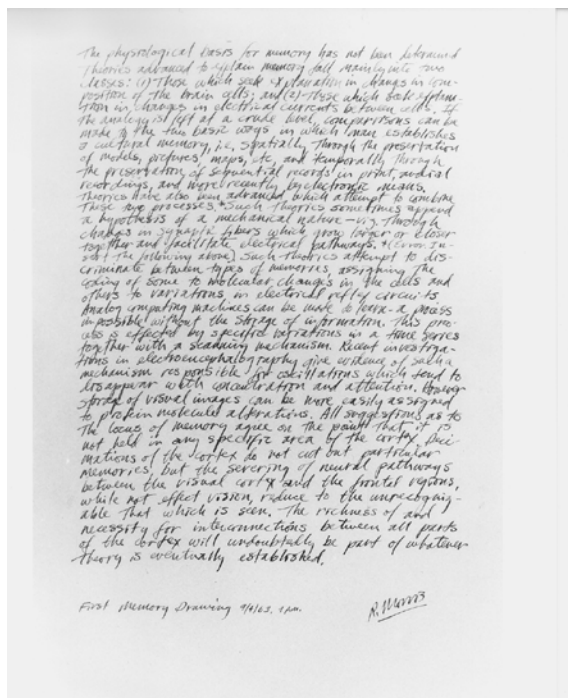 The physiological basis for memory has not been determined
Theories advanced to explain memory fall mainly into two
classes: (1) Those which seek explanation in changes in com-
position of the brain cells; and (2) Those which seek explana-
tion in changes in electrical currents between cells. If
the analogy is left at a crude level, comparisons can be
made to the two basic ways in which man establishes
a cultural memory, i.e, spatially through the preservation
of models, pictures, maps, etc, and temporally through
the preservation of sequential records in print, audial
recordings, and more recently by electronic means.
Theories have also been advanced, which attempt to combine
These two processes. * Such Theories sometimes append
a hypothesis of a mechanical nature — viz, Through
changes in synaptic fibers which grow larger or closer
together and facilitate electrical pathways. * (Error, In-
sert the following above) Such Theories attempt to dis-
criminate between types of memories, assigning The
coding of some to molecular changes in the cells and
others to variations in electrical reflex circuits
Analog computing machines can be made to learn - a process
impossible without the storage of information. This pro-
cess is effected by specific variations in a time series
together with a scanning mechanism. Recent investiga-
tions in electroencephalography give evidence of such a
mechanism responsible for oscillations which tend to
disappear with concentration and attention. However
storage of visual images can be more easily assigned
to protein molecule alterations. All suggestions as to
The locus of memory agree on the point That it is
not held in any specific area of the cortex. Deci-
mations of the cortex do not cut out particular
memories, but the severing of neural pathways
between the visual cortex and the frontal regions,
while not effect vision, reduce to the unrecogniz-
able That which is seen. The richness of and
necessity for interconnections between all parts
of the cortex will undoubtably be part of whatever
theory is eventually established.
First Memory Drawing 9/4/63.
R. Morris